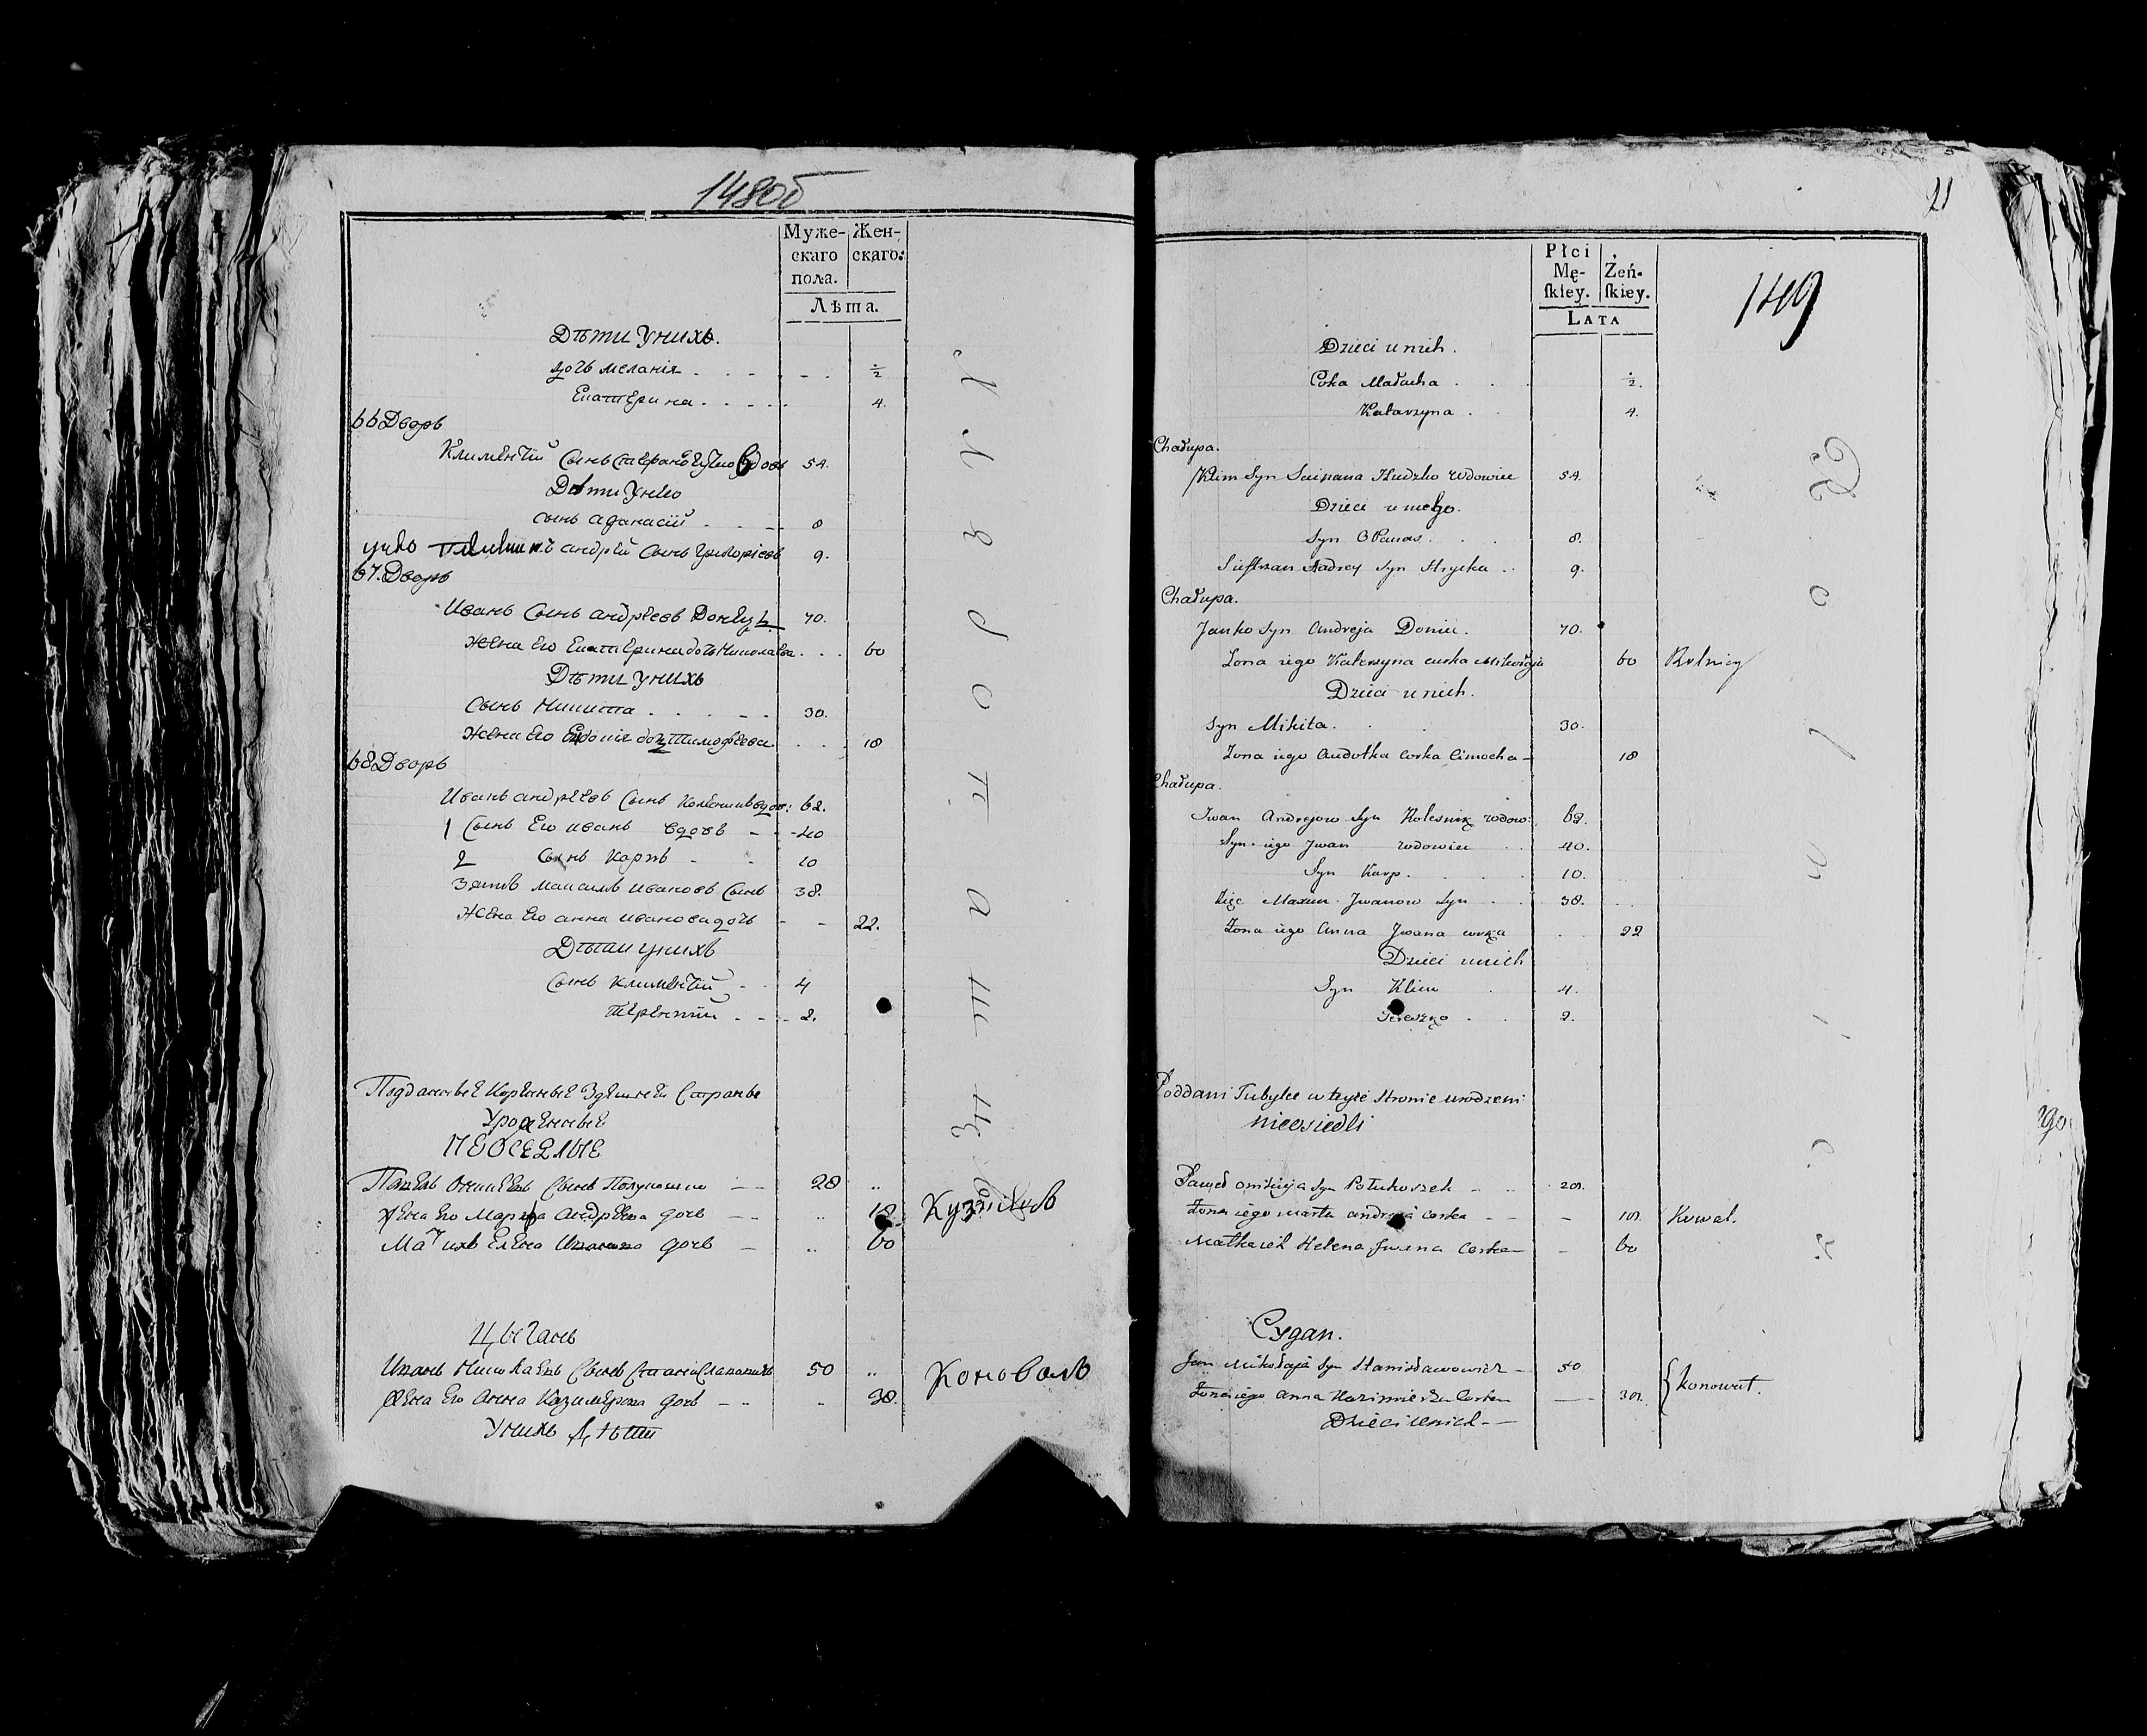 148об
Муже- Жен-
скаго скаго:
пола.
Лѣта.
Дѣти Унихъ.
дочь меланія ½
Екатерина 4.
66 Дворъ
Климентій Сынъ вдовъ 54.
Дѣти Унего
сынъ афанасій 8
унего андрей Сынъ Григоріевъ 9.
67. Дворъ
Иванъ Сынъ андреевъ 70.
Жена Его Екатерина дочь Николаева 60
Дѣти Унихъ
Сынъ Никита 30.
Жена Его дочь Тимофеева 18
68 Дворъ
Иванъ андреевъ Сынъ 62.
1 Сынъ Его иванъ вдовъ 40
2 Сынъ Карпъ 10
Зять максимъ ивановъ Сынъ 38.
Жена Его анна иванова дочь 22.
Дѣти унихъ
Сынъ Климентій 4
Терентій 2.
Подданные Коренные Здешней Стороны
Урожденные
НЕОСЕДЛЫЕ
Павелъ Сынъ 28
Жена Его Марфа Андреева дочь 18.
Мать ихъ Елена Иванова дочь 60
Цыганъ
Иванъ Николаевъ Сынъ Станиславовичь 50
Жена Его Анна Казимирова дочь 38.
Унихъ Дѣти
Хлѣбопашцы
Кузнецъ
Коновалъ
21
149
Płci
Mę- Żeń-
ſkiey. ſkiey.
LATA
Dzieci u nich.
Córka Małacha ½.
Katarzyna 4.
Chałupa.
Klim Syn Hudzko Wdowiec 54.
Dzieci u niego.
Syn 8.
Andrey Syn Hryćka 9.
Chałupa.
Janko Syn Andreja 70.
Żona iego Katerzyna curka Mikołaja 60 Rolnicy
Dzieci u nich.
Syn Mikita. 30.
Żona iego Audotka Corka Cimocha 18
Chałupa.
Iwan Andrejow Syn wdow: 62.
Syn iego Jwan wdowiec 40.
Syn Karp. 10.
Zięć Maxim Jwanow Syn 38.
Żona iego Anna Jwana corka 22
Dzieci u nich
Syn Klim 4.
Tereszko 2.
Poddani Tubylce w teyże stronie urodzeni
nieosiedli
Paweł Syn 28.
Żona iego Marta Andreja Corka 18. Kowal.
Matka ich Helena Jwana Corka 60
Cygan.
Jan Mikołaja Syn Stanisławowicz 50
Żona iego Anna Kazimierza Corka 38. konował.
Dzieci u nich
Rolnicy